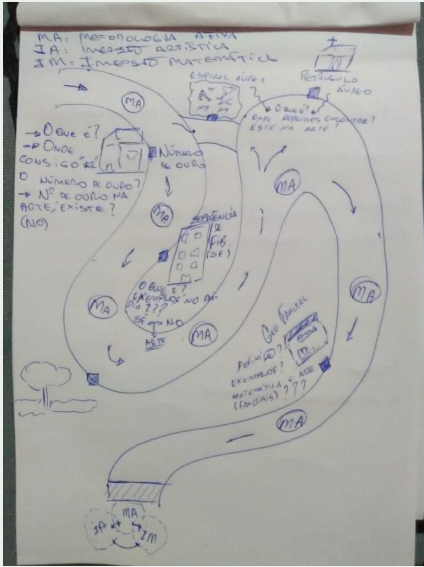 MA: METODOLOGIA ATIVA
IA: IMERSÃO ARTÍSTICA
IM = IMERSÃO MATEMÁTICA
ESPIRAL ÁUREA
RETÂNGULO
ÁUREO
MA
→ O QUE É?
→ ONDE
CONSIGO VER
O NÚMERO DE OURO?
→ Nº DE OURO NA
ARTE, EXISTE?
(NO)
NÚMERO
DE OURO
O QUE É?
PODEMOS ENCONTRAR?
ESTÁ NA ARTE?
MA
MA
SEQUÊNCIA
FIB.
(SF)
O QUE É?
EXEMPLOS NO
DIA???
SF ↔ NO
ARTE
MA
MA
MA
GEO FRACTAL
DEFINIÇÃO?
EXEMPLOS?
MATEMÁTICA E ARTE
(FRACTAIS)???
MA
MA
IA
IM